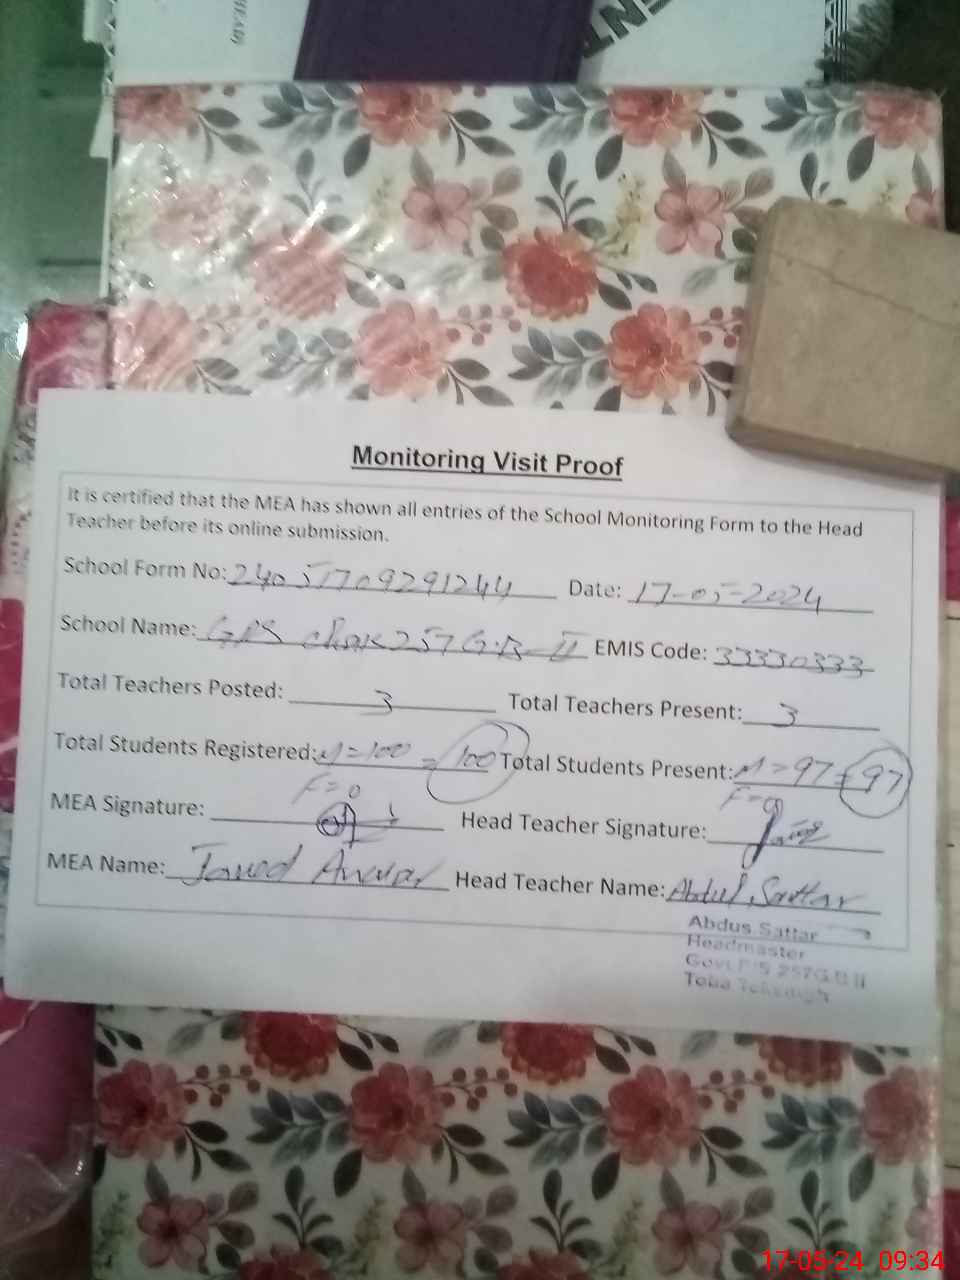 HEAD)
ENT
Monitoring Visit Proof
It is certified that the MEA has shown all entries of the School Monitoring Form to the Head
Teacher before its online submission.
School Form No: 24051709291244 Date: 17-05-2024
School Name: GPS Chak 257 G.B-II EMIS Code: 33330333
Total Teachers Posted: 3 Total Teachers Present: 3
Total Students Registered: M=100 = 100 Total Students Present: M=97=97
F=0 F=0
MEA Signature: Head Teacher Signature:
MEA Name: Jawad Anwar Head Teacher Name: Abdul Sattar
Abdus Sattar
Headmaster
Govt P/S 257G.B II
Toba Teksingh
17-05-24 09:34